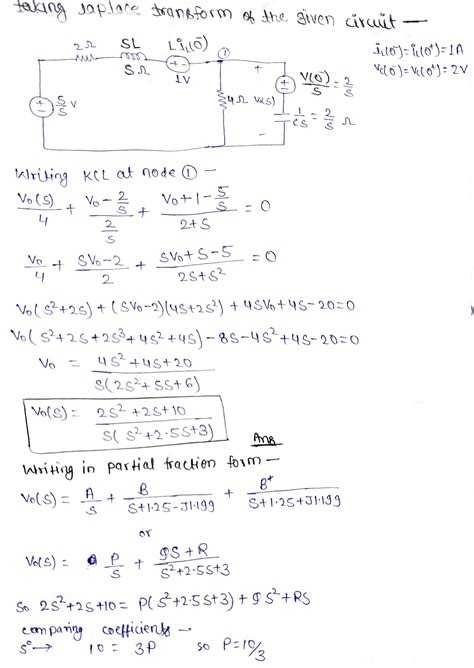 taking laplace transform of the given circuit —
2Ω SL Li₁(0⁻) ①
SΩ 1V
i₁(0⁻) = i₁(0⁺) = 1A
Vc(0⁻) = Vc(0⁺) = 2V
5/S V
4Ω V₀(S)
+
-
V(0⁻)/S = 2/S
1/CS = 2/S Ω
Writing KCL at node ① —
V₀(S)/4 + (V₀ - 2/S)/(2/S) + (V₀+1-5/S)/(2+S) = 0
V₀/4 + (SV₀-2)/2 + (SV₀+S-5)/(2S+S²) = 0
V₀(S²+2S) + (SV₀-2)(4S+2S²) + 4SV₀+4S-20=0
V₀(S²+2S+2S³+4S²+4S) -8S-4S²+4S-20=0
V₀ = (4S²+4S+20)/(S(2S²+5S+6))
V₀(S) = (2S²+2S+10)/(S(S²+2.5S+3))
Ans
Writing in partial traction form —
V₀(S) = A/S + B/(S+1.25-J1.199) + B*/(S+1.25+J1.199)
or
V₀(S) = P/S + (QS+R)/(S²+2.5S+3)
So 2S²+2S+10 = P(S²+2.5S+3) + QS²+RS
comparing coefficients —
S⁰→ 10 = 3P so P=10/3